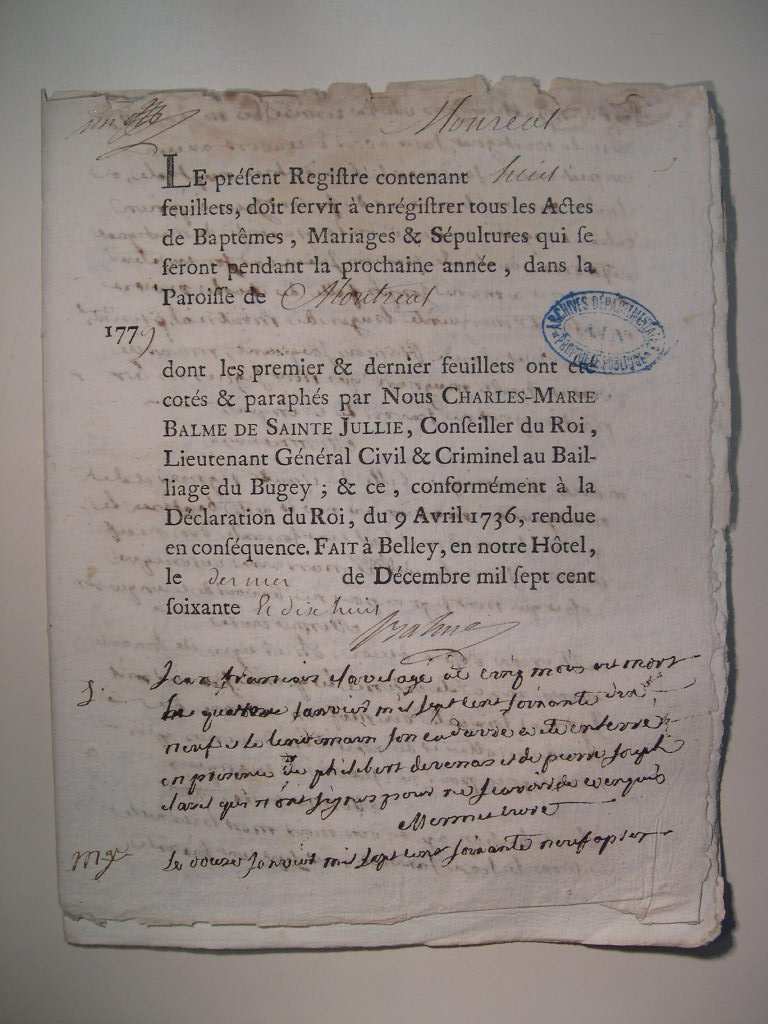 Montreal
LE préſent Regiſtre contenant huit
feuillets, doit ſervir à enrégiſtrer tous les Actes
de Baptêmes, Mariages & Sépultures qui ſe
ſeront pendant la prochaine année, dans la
Paroiſſe de Montreal
1779
dont les premier & dernier feuillets ont été
cotés & paraphés par Nous CHARLES-MARIE
BALME DE SAINTE JULLIE, Conſeiller du Roi,
Lieutenant Général Civil & Criminel au Bail-
liage du Bugey; & ce, conformément à la
Déclaration du Roi, du 9 Avril 1736, rendue
en conſéquence. FAIT à Belley, en notre Hôtel,
le dernier de Décembre mil ſept cent
ſoixante et dix huit
Balme
ARCHIVES DÉPARTEMENTALES
AIN
PROPRIÉTÉ PUBLIQUE
S.
Jean francois clavelage de cinq mois est mort
le quatorze janvier mil sept cent soixante dix
neuf et le lendemain son cadavre a ete enterre
en presence de philibert devenas et de pierre joseph
claret qui n'ont signes pour ne scavoir de ce enquis
Mermet cure
mge
Le douze janvier mil sept cent soixante neuf apres